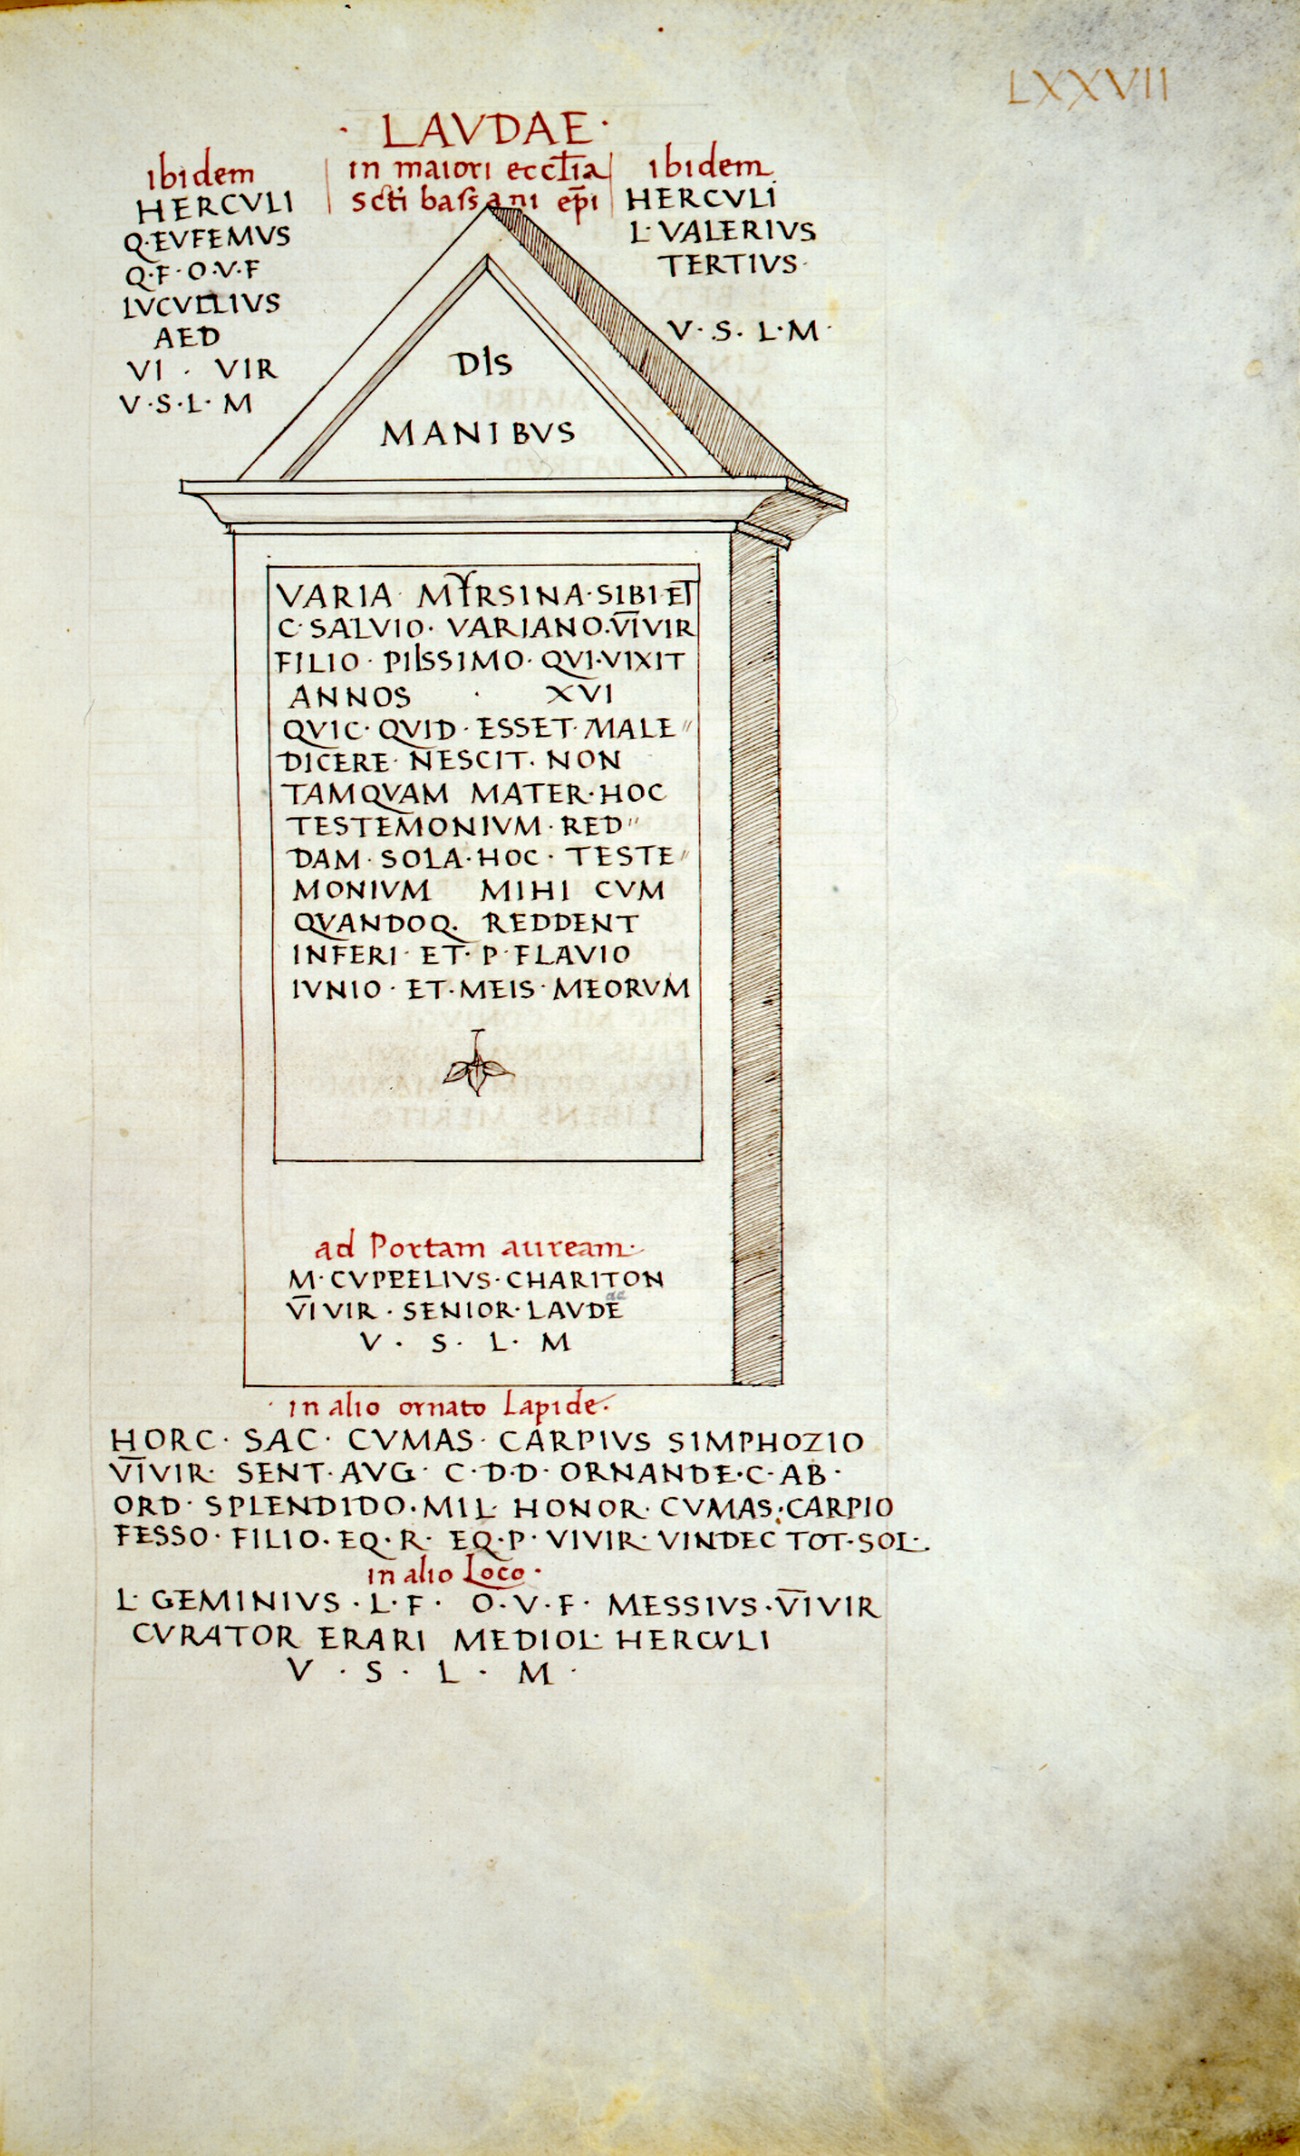 LXXVII
· LAVDAE ·
in maiori ecct̄ia
scti bassani ep̄i
ibidem
HERCVLI
Q·EVFEMVS
Q·F·O·V·F
LVCVLLIVS
AED
VI · VIR
V·S·L·M
ibidem
HERCVLI
L·VALERIVS
TERTIVS·
V·S·L·M·
DIS
MANIBVS
VARIA MYRSINA·SIBI·ET
C·SALVIO·VARIANO·V̅I̅VIR
FILIO·PIISSIMO·QVI·VIXIT
ANNOS · XVI
QVIC·QVID·ESSET·MALE"
DICERE·NESCIT·NON
TAMQVAM MATER·HOC
TESTEMONIVM·RED"
DAM·SOLA·HOC·TESTE"
MONIVM MIHI CVM
QVANDOQ. REDDENT
INFERI·ET·P·FLAVIO
IVNIO·ET·MEIS·MEORVM
ad Portam auream·
M·CVPEELIVS·CHARITON
V̅I̅VIR·SENIOR·LAVDE
ae
V· S· L· M
· in alio ornato Lapide·
HORC· SAC· CVMAS· CARPIVS SIMPHOZIO
V̅I̅VIR· SENT·AVG· C·D·D· ORNANDE·C·AB·
ORD· SPLENDIDO·MIL· HONOR· CVMAS·CARPIO
FESSO·FILIO·EQ·R· EQ·P·VIVIR·VINDEC TOT·SOL·
in alio Loco·
L·GEMINIVS·L·F· O·V·F· MESSIVS·V̅I̅VIR
CVRATOR ERARI MEDIOL·HERCVLI
V · S · L · M ·